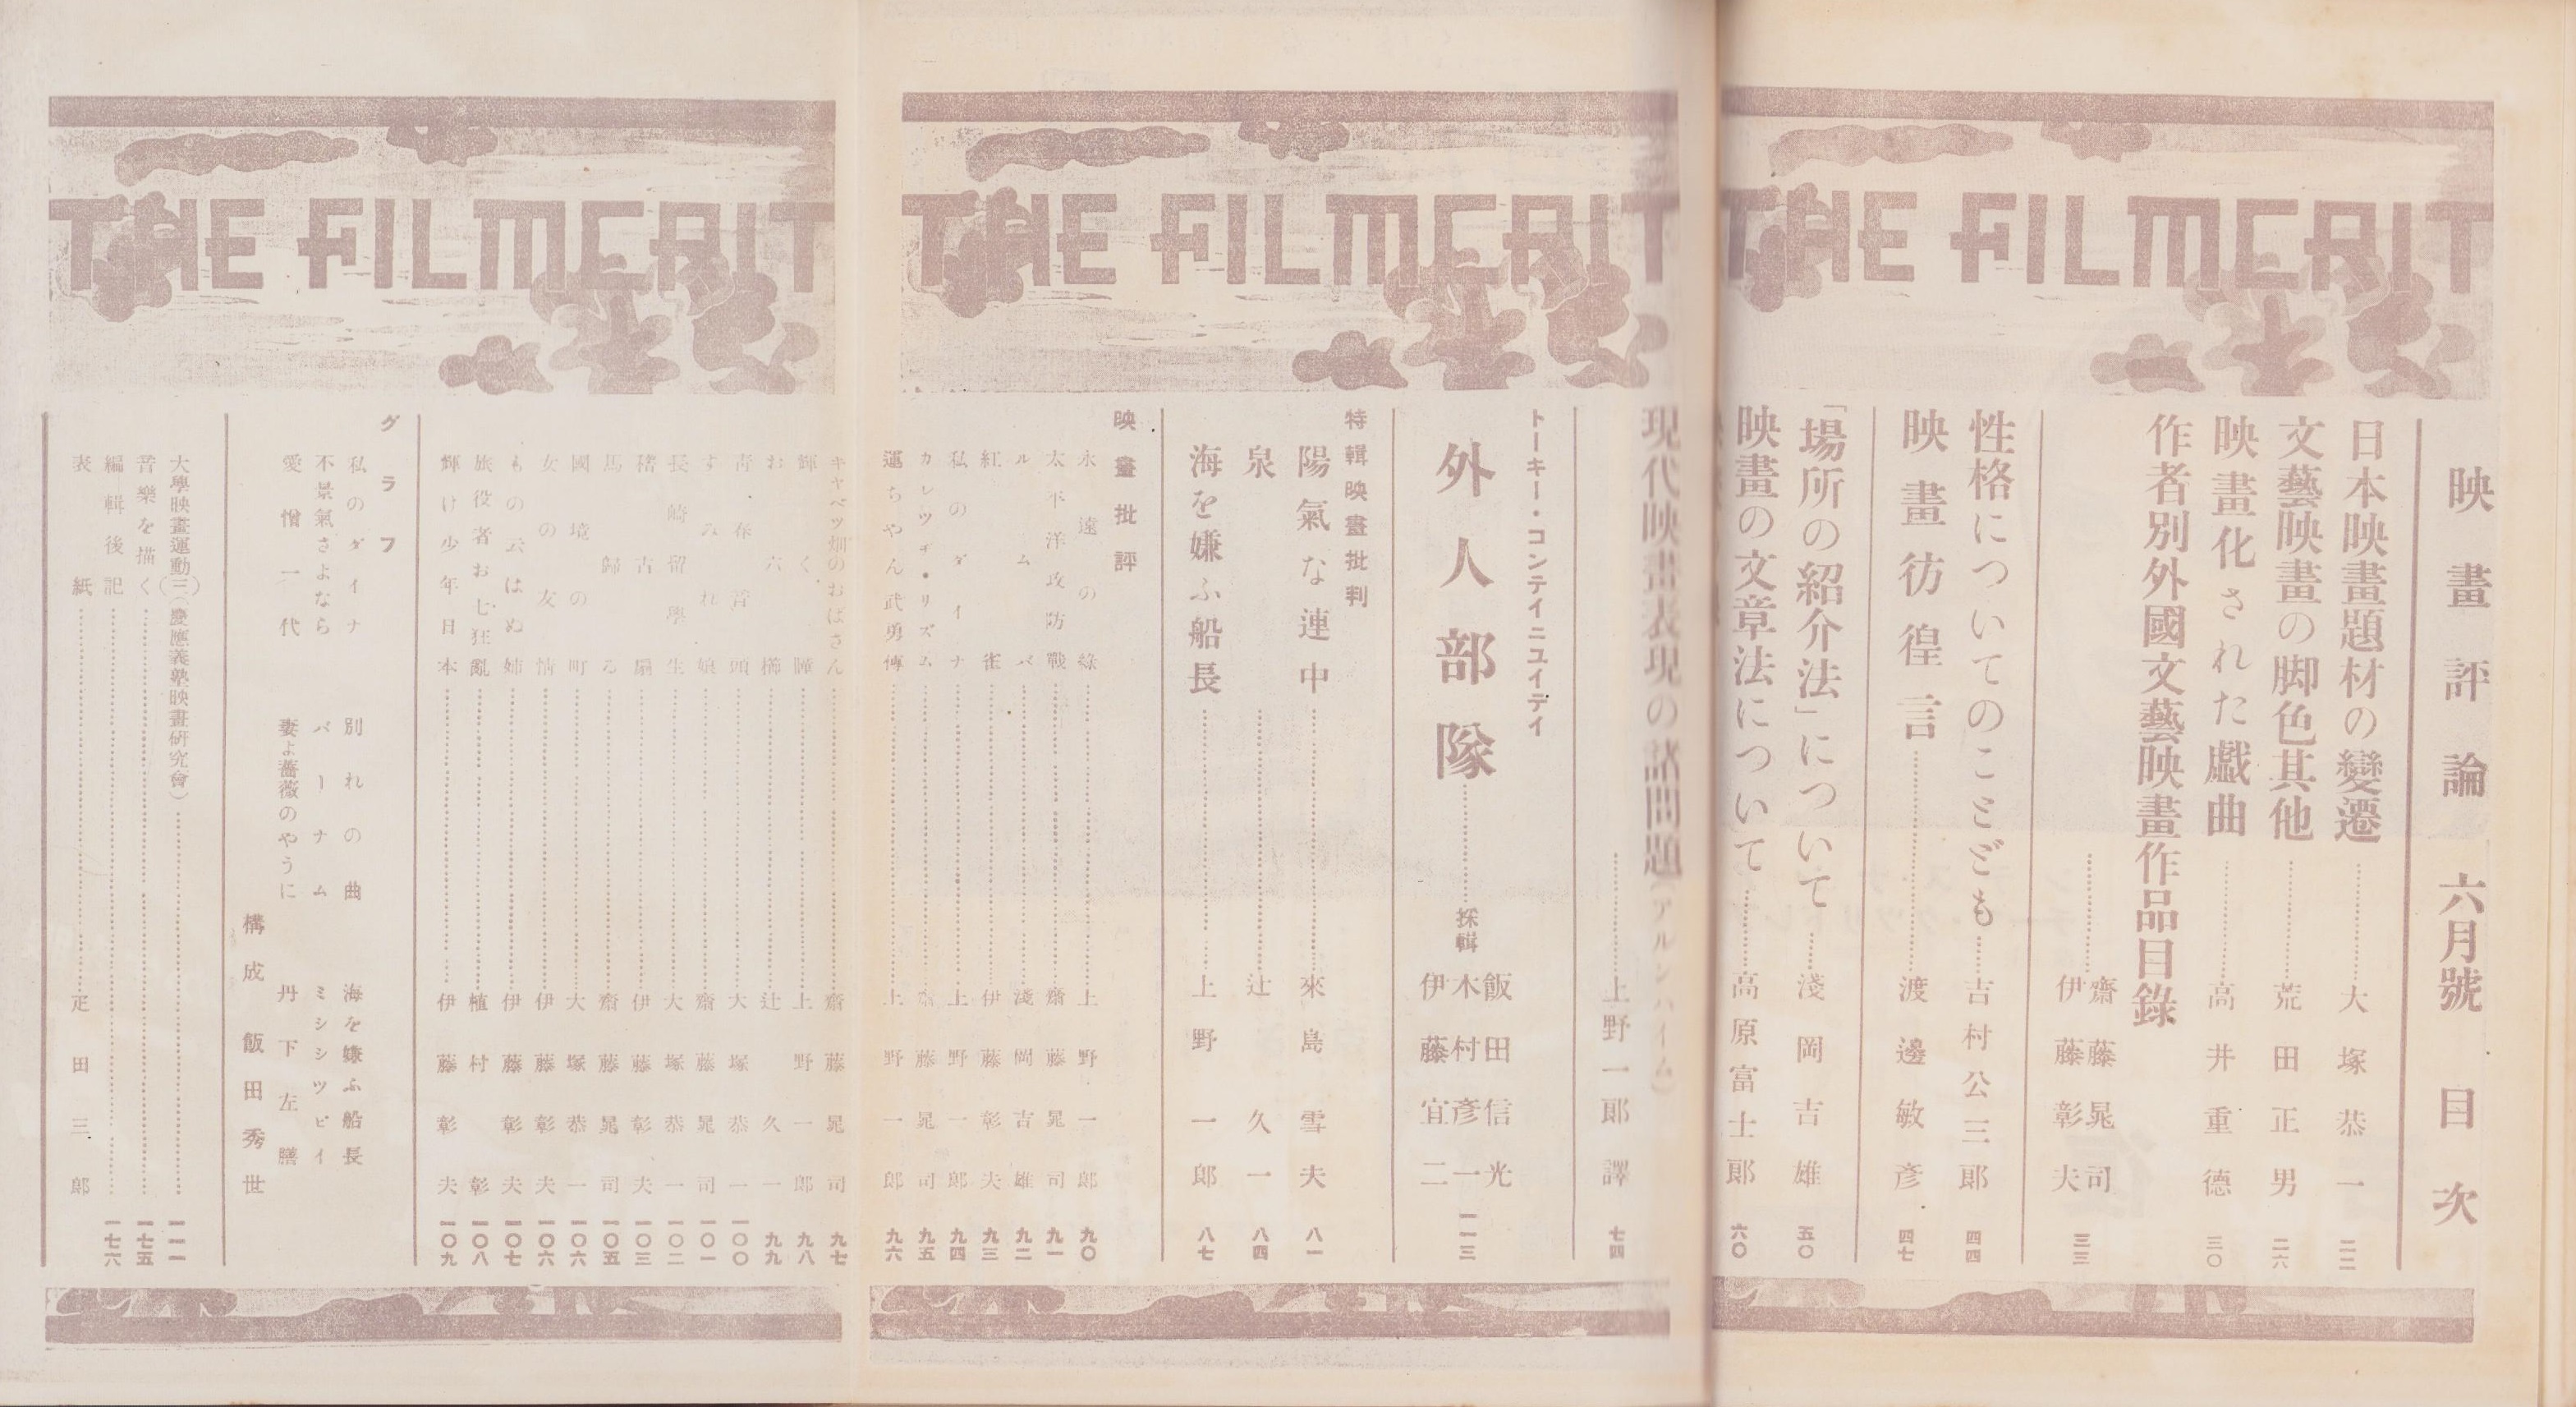 THE FILMCRIT
THE FILMCRIT
THE FILMCRIT
映畫評論 六月號 目次
日本映畫題材の變遷……大塚恭一 二二
文藝映畫の脚色其他……荒田正男 二六
映畫化された戯曲……高井重德 三〇
作者別外國文藝映畫作品目錄
……齋藤晃司 伊藤彰夫 三三
性格についてのことども……吉村公三郎 四四
映畫彷徨言……渡邊敏彥 四七
「場所の紹介法」について……淺岡吉雄 五〇
映畫の文章法について……高原富士郎 六〇
現代映畫表現の諸問題(アルンハイム)
……上野一郎譯 七四
トーキー・コンテイニユイテイ
外人部隊……採輯 飯田信光 木村彥一 伊藤宜二 一一三
特輯映畫批判
陽氣な連中……來島雪夫 八一
泉……辻久一 八四
海を嫌ふ船長……上野一郎 八七
映畫批評
永遠の綠……上野一郎 九〇
太平洋攻防戰……齋藤晃司 九一
ルムバ……淺岡吉雄 九二
紅雀……伊藤彰夫 九三
私のダイナ……上野一郎 九四
カレツヂ・リズム……齋藤晃司 九五
運ちやん武勇傳……上野一郎 九六
キャベツ畑のおばさん……齋藤晃司 九七
輝く瞳……上野一郎 九八
お六櫛……辻久一 九九
靑春音頭……大塚恭一 一〇〇
すみれ娘……齋藤晃司 一〇一
長崎留學生……大塚恭一 一〇二
稽古扇……伊藤彰夫 一〇三
馬歸る……齋藤晃司 一〇五
國境の町……大塚恭一 一〇六
女の友情……伊藤彰夫 一〇六
もの云はぬ姉……伊藤彰夫 一〇七
旅役者お七狂亂……植村彰 一〇八
輝け少年日本……伊藤彰夫 一〇九
グラフ
私のダイナ 別れの曲 海を嫌ふ船長
不景氣さよなら バーナム ミシシツピイ
愛憎一代 妻よ薔薇のやうに 丹下左膳
構成 飯田秀世
大學映畫運動(三)(慶應義塾映畫研究會)……一一一
音樂を描く……一七五
編輯後記……一七六
表紙……疋田三郎